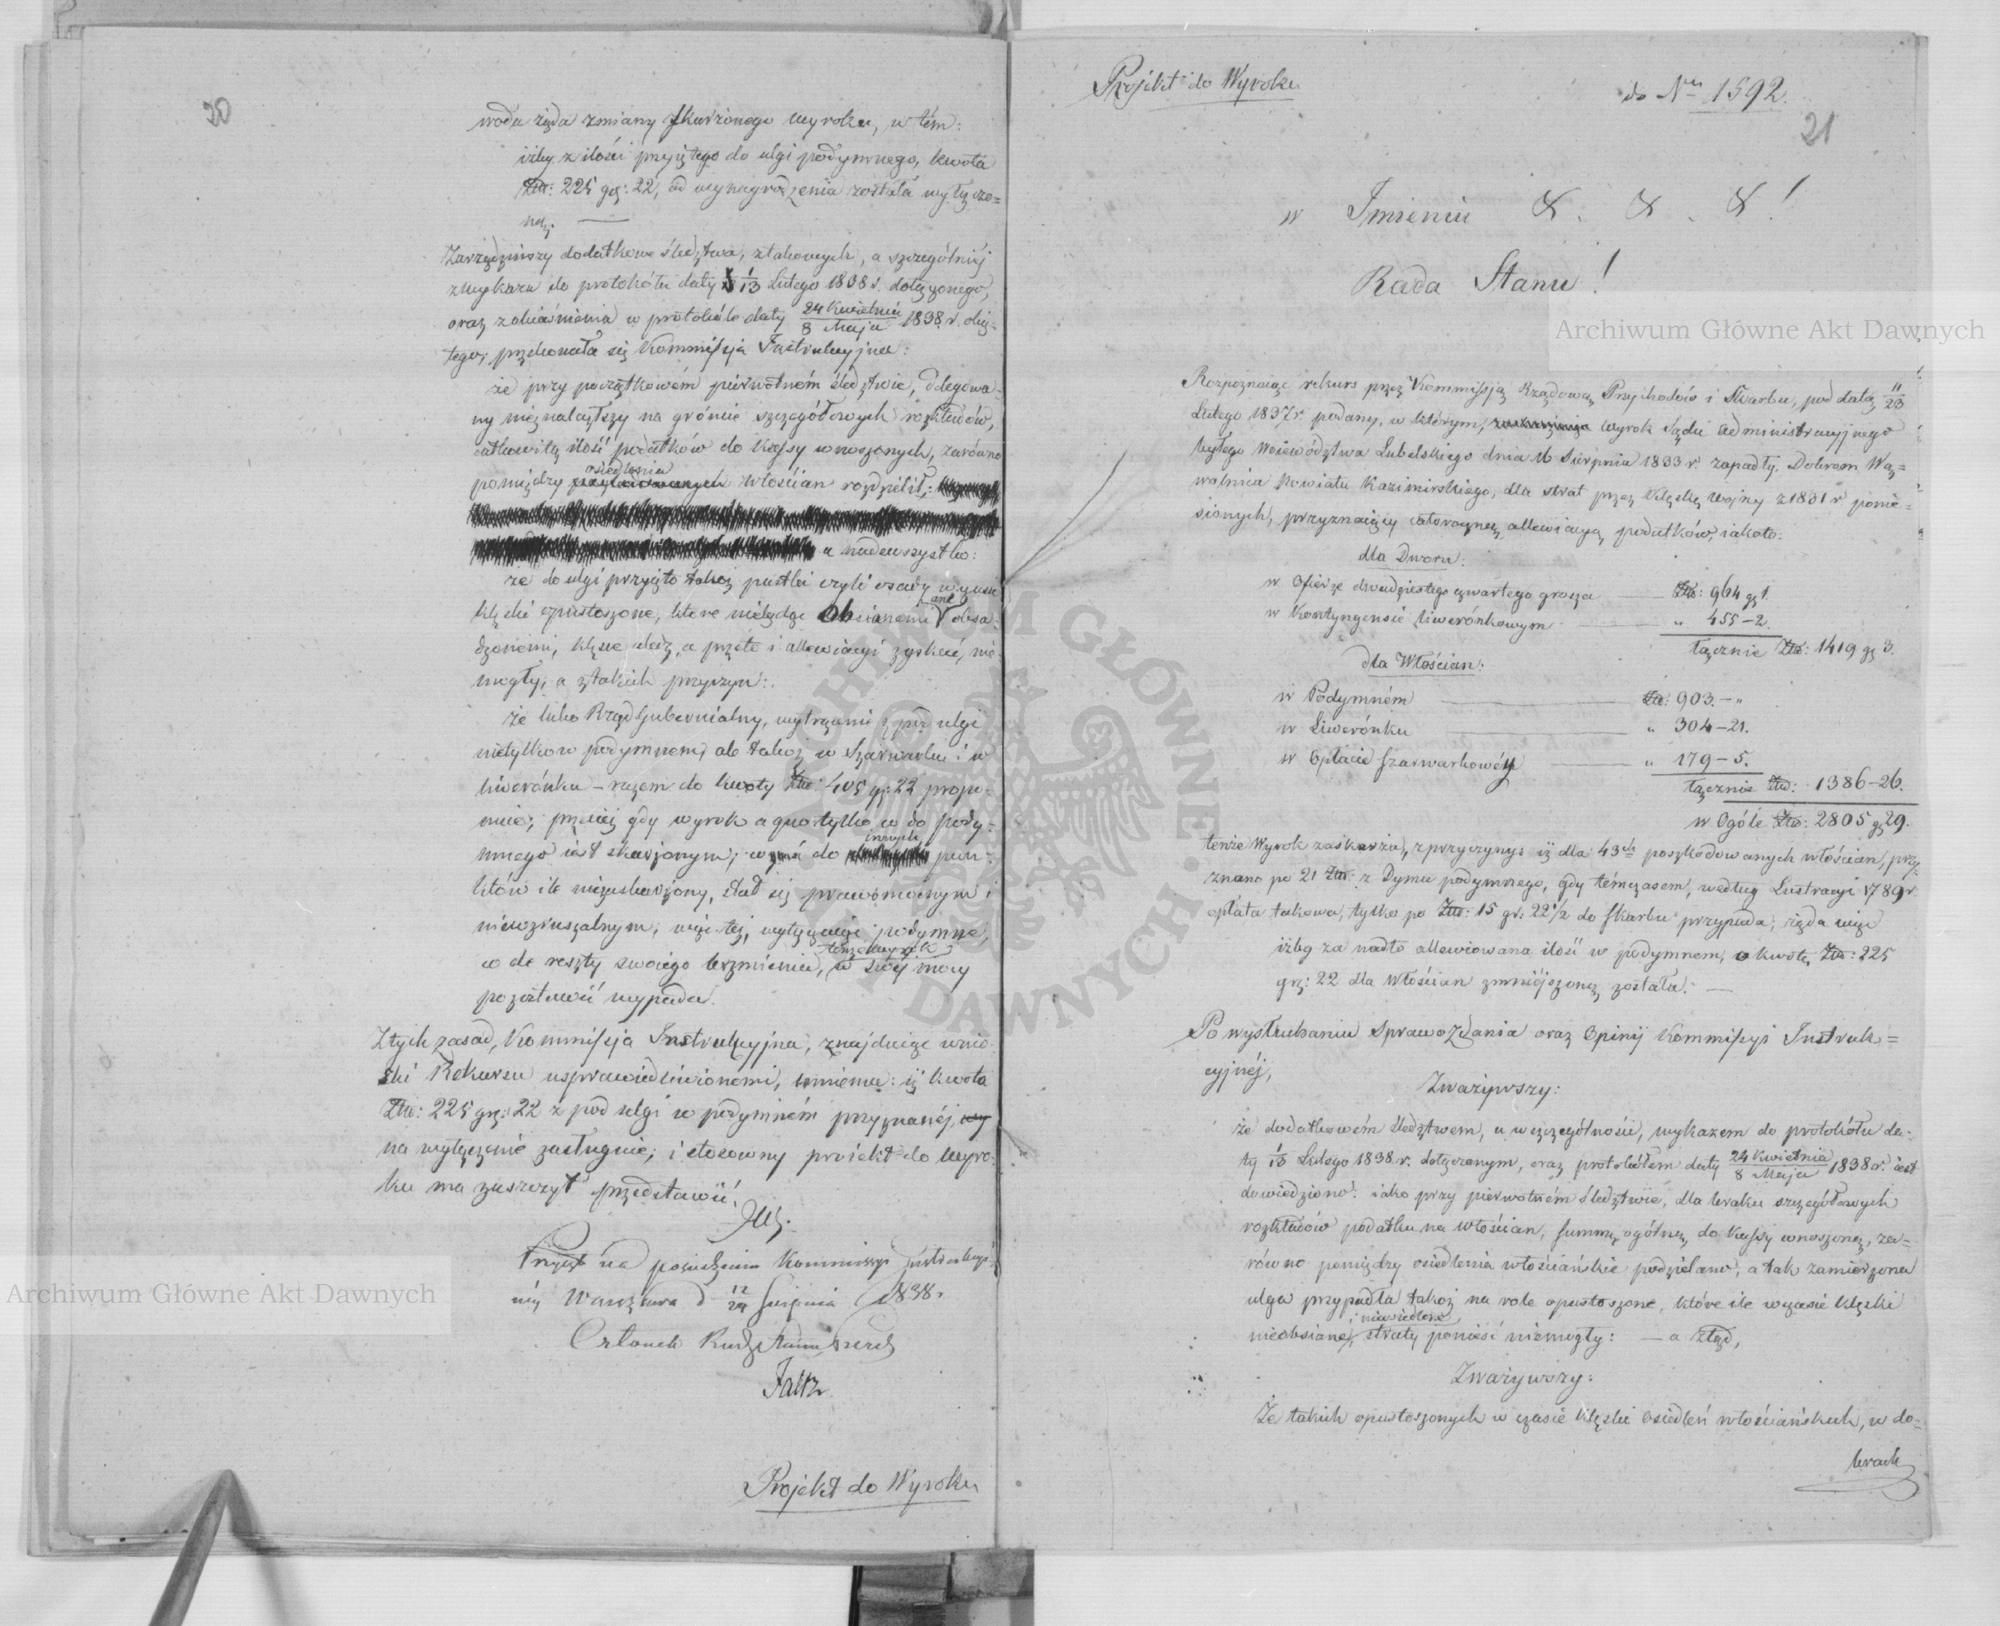 20
wodu żąda zmiany skarżonego wyroku, w tém:
iżby z ilości przyjętego do ulgi podymnego, kwota
Złtt: 225 gr: 22, od wynagrodzenia została wyłączo=
ną. —
Zarządziwszy dodatkowe śledztwa, z takowych, a szczególniéj
z wykazu do protokółu daty 1/13 Lutego 1838 r. dołączonego,
oraz z obiaśnienia w protokóle daty 24 Kwietnia / 8 Maja 1838 r. obię-
tego, przekonała się Kommissja Instrukcyjna:
że przy początkowém pierwotném śledztwie, delegowa-
ny nieznalazłszy na grόncie szczegółowych rozkładów,
całkowitą ilość podatków do Kassy wnoszonych, zarówno
pomiędzy osiedlenia Włościan rozdzielił;
a nadewszystko:
że do ulgi przyjęto także pustki czyli osady w czasie
klęski opustoszone, które niebędąc obsianemi ani obsa-
dzonemi, klęsce uledz, a przeto i allewiacyi zyskać, nie
mogły; a z takich przyczyn:
że lubo Rząd Gubernialny, wytrącenie z pod ulgi
nietylko w podymnem, ale także w Szarwarku i w
liwerónku — razem do kwoty Złtt: 405 gr: 22 propo-
nuie; przecież gdy wyrok a quo tylko co do pody-
mnego iest skarżonym; co do innych pun-
któw ile niezaskarżony, stał się prawomocnym i
niewzruszalnym; więc téż, wyłączając podymne,
co do reszty swoiego brzmienia, tenże wyrok w swéj mocy
pozostawić wypada.
Z tych zasad, Kommissja Instrukcyjna, znajduiąc wnio-
ski Rekursu usprawiedliwionemi, mniema: iż kwota
Złtt: 225 gr: 22 z pod ulgi w podymném przyznanéj
na wyłączenie zasługuie; i stosowny proiekt do wyro-
ku ma zaszczyt przedstawić.
Przyjęt na posiedzeniu Kommissyi Instrukcyi-
néj Warszawa d 12/24 Sierpnia 1838.
Członek Rady Stanu
Projekt do Wyroku
Projekt do Wyroku
do Nru 1592.
21
w Imieniu &. &. &!
Rada Stanu!
Rozpoznaiąc rekurs przez Kommissją Rządową Przychodów i Skarbu, pod datą 11/23
Lutego 1837 r. podany, w którym, wyrok Sądu Administracyjnego
byłego Woiewództwa Lubelskiego dnia 16 Sierpnia 1833 r. zapadły, Dobrom Wą=
walnica Powiatu Kazimirskiego, dla strat przez klęskę wojny z 1831 r. ponie=
sionych, przyznaiący całoroczną allewiacyą podatków, iakoto:
dla Dworu:
w Ofierze dwudziestego czwartego grosza — Złtt: 964 gr 1.
w Kontyngensie liwerónkowym — " 455-2.
łącznie Złtt: 1419 gr 3.
dla Włościan:
w Podymném — Złtt: 903.-"
w Liwerónku — " 304-21.
w Opłacie Szarwarkowéy — " 179-5.
łącznie Złtt: 1386-26.
w Ogóle Złtt: 2805 gr 29.
tenże Wyrok zaskarża, z przyczyny: iż dla 43ch poszkodowanych włościan, przy-
znano po 21 Złtt. z Dymu podymnego, gdy témczasem, według Lustracyi 1789 r.
opłata takowa, tylko po Złtt: 15 gr: 22½ do Skarbu przypada; żąda więc
iżby za nadto allewiowana ilość w podymnem, o kwotę Złtt: 225
gr: 22 dla Włościan zmniéjszoną została. —
Po wysłuchaniu Sprawozdania oraz Opinij Kommissyi Instruk=
cyjnéj,
Zważywszy:
że dodatkowém śledztwem, a w szczególności, wykazem do protokółu da-
ty 1/13 Lutego 1838 r. dołączonym, oraz protokółem daty 24 Kwietnia / 8 Maja 1838 r. iest
dowiedziono: iako przy pierwotném śledztwie, dla braku szczegółowych
rozkładów podatku na włościan, summę ogólną do Kassy wnoszoną, za-
równo pomiędzy osiedlenia włościańskie podzielano, a tak zamierzona
ulga przypadła także na role opustoszone, które ile w czasie klęski
nieobsiane, straty ponieść niemogły: — a ztąd,
Zważywszy:
Że takich opustoszonych w czasie klęski osiedleń włościańskich, w do-
brach
Archiwum Główne Akt Dawnych
Archiwum Główne Akt Dawnych
ARCHIWUM GŁÓWNE AKT DAWNYCH